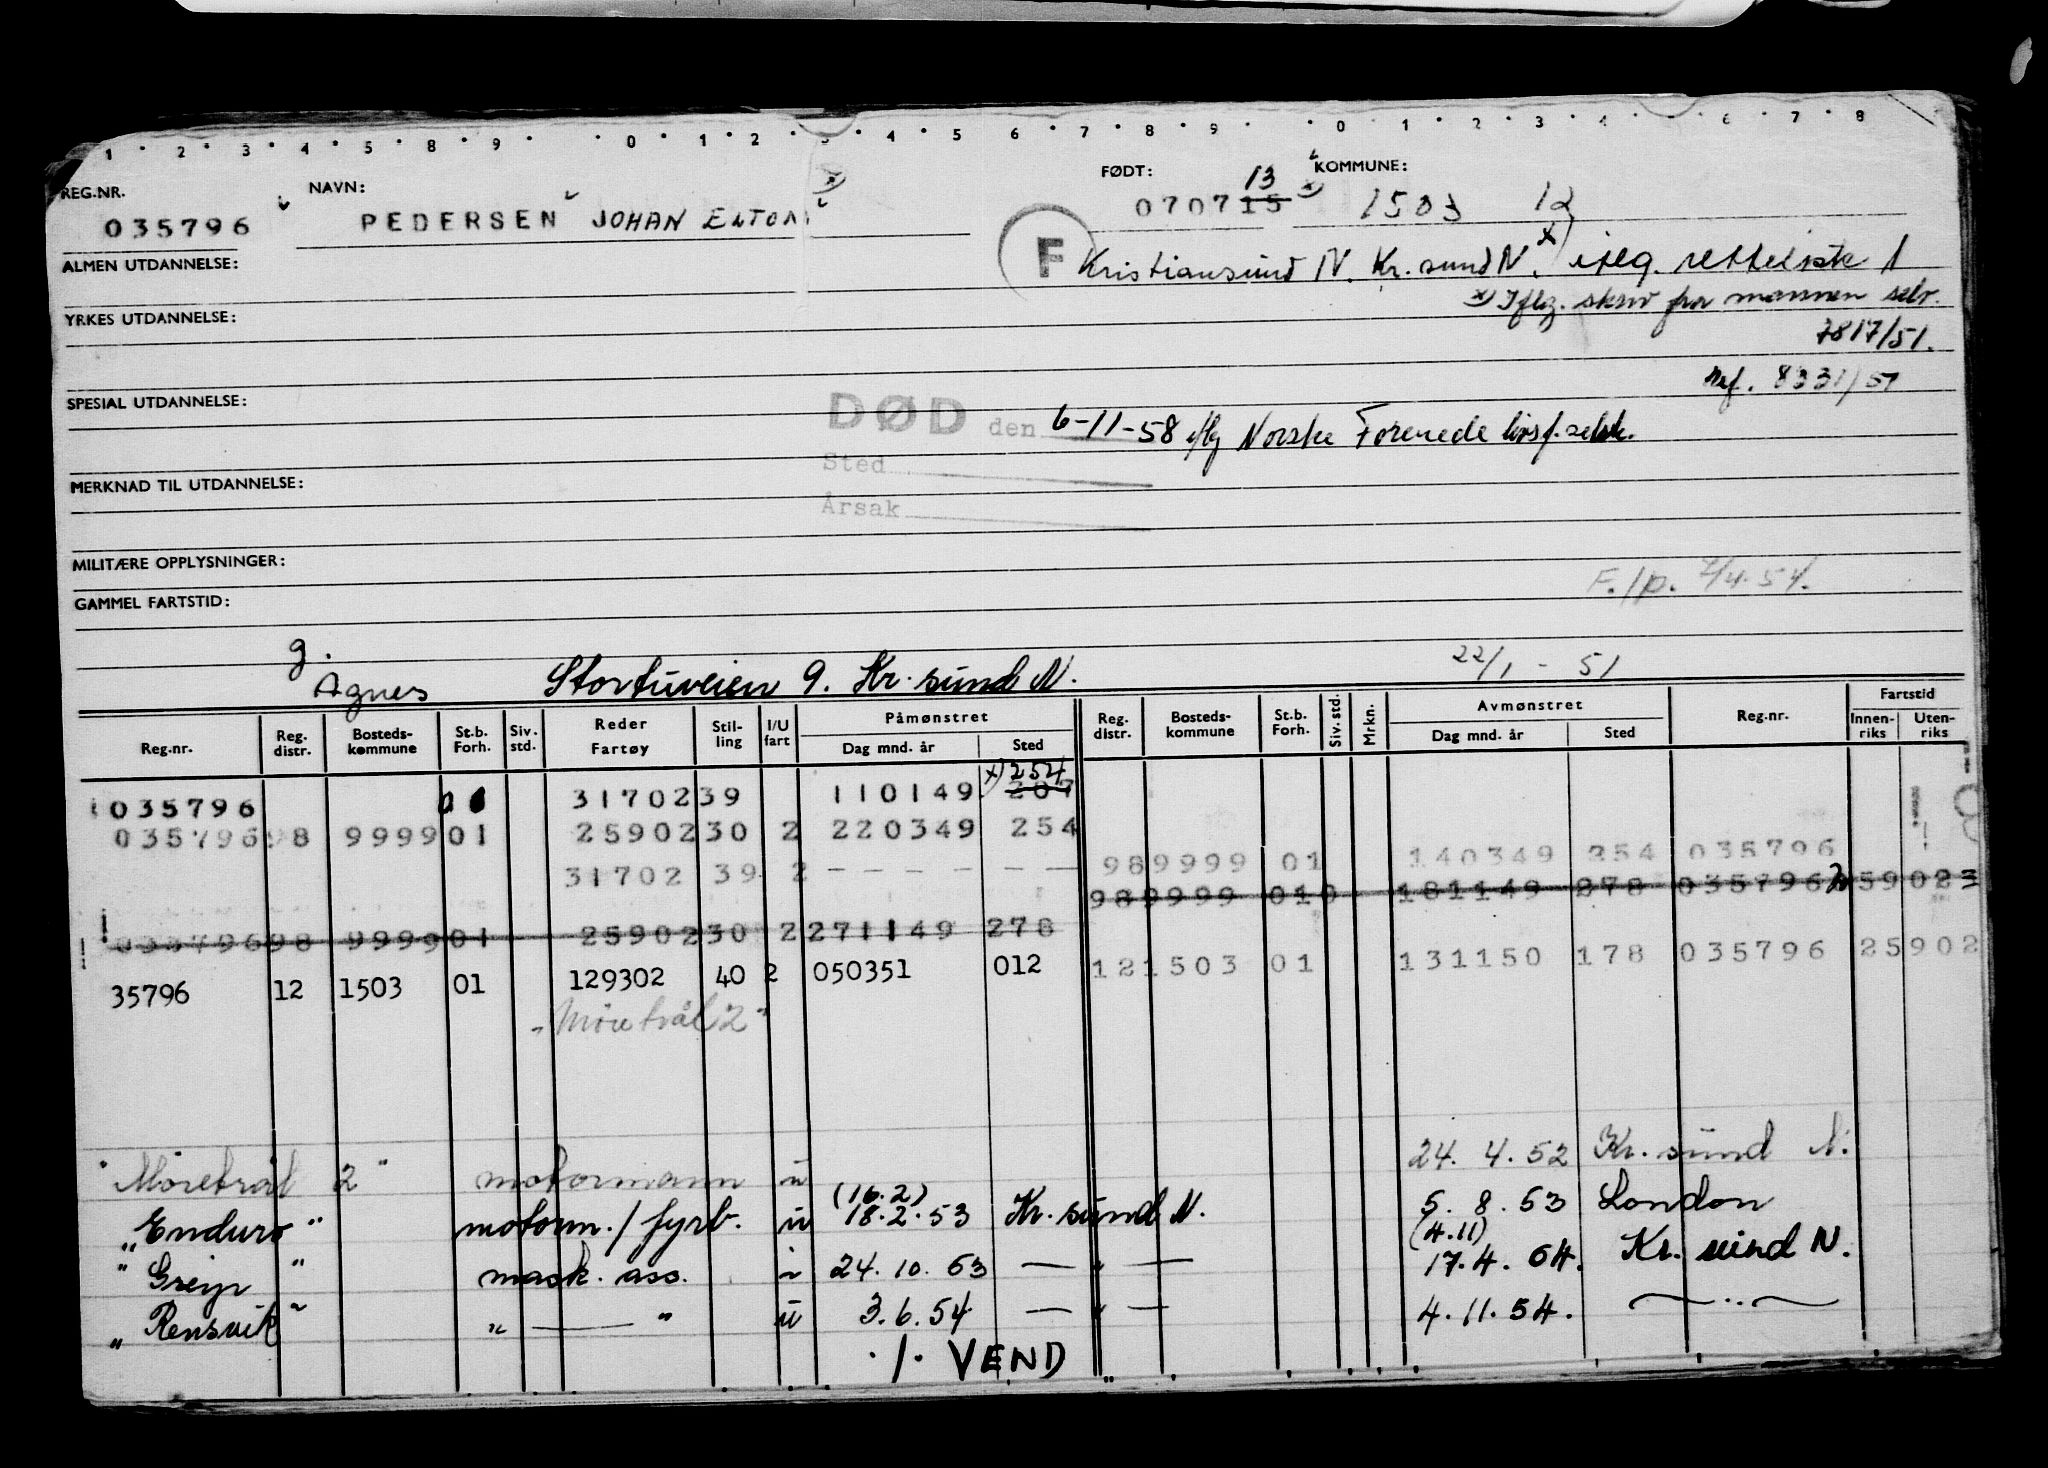 1 . 2 . 3 . 4 . 5 . 8 . 9 . . 0 . 1 . 2 . 3 . 4 . 5 6 . 7 . 8 . 9 . . 0 . 1 . 2 . 3 . 4 . . 6 . 7 . 8
REG.NR. NAVN: FØDT: 13 KOMMUNE:
035796 PEDERSEN JOHAN ELTON x) 070715 x) 1503 12
ALMEN UTDANNELSE: F Kristiansund N. Kr.sund N. x) iflg. retteliste 1
YRKES UTDANNELSE: x) Iflg. skriv fra mannen selv.
7817/51.
SPESIAL UTDANNELSE: Ref. 8331/51
DØD den 6-11-58 iflg Norske Forenede livsf.selsk.
Sted
MERKNAD TIL UTDANNELSE:
Årsak
MILITÆRE OPPLYSNINGER:
F./p. 2/4.54.
GAMMEL FARTSTID:
g.
Agnes Stortuveien 9. Kr. sund N. 22/1 - 51
Reg.nr. Reg. distr. Bosteds-kommune St.b. Forh. Siv. std. Reder Fartøy Stil-ling I/U fart Påmønstret Dag mnd. år Sted Reg. distr. Bosteds-kommune St.b. Forh. Siv. std. Mrkn. Avmønstret Dag mnd. år Sted Reg.nr. Fartstid Innen-riks Uten-riks
x) 254
035796 31702 39 110149 207
035796 98 9999 01 25902 30 2 220349 254
98 9999 01 140349 254 035796
31702 39 2 - - - - - -
98 9999 01 181149 278 035796 25902
035796 98 9999 01 25902 30 2 271149 278
12 1503 01 131150 178 035796 25902
35796 12 1503 01 129302 40 2 050351 012
"Møretrål 2"
"Møretrål 2" motormann u 24. 4. 52 Kr. sund N.
(16.2)
"Enduro" motorm./fyrb. u 18.2.53 Kr. sund N. 5. 8. 53 London
(4.11)
"Greip" mask. ass. i 24. 10. 53 — " — 17.4. 54. Kr. sund N.
"Rensvik" " — " u 3.6.54 — " — 4.11.54. — " —
./. VEND